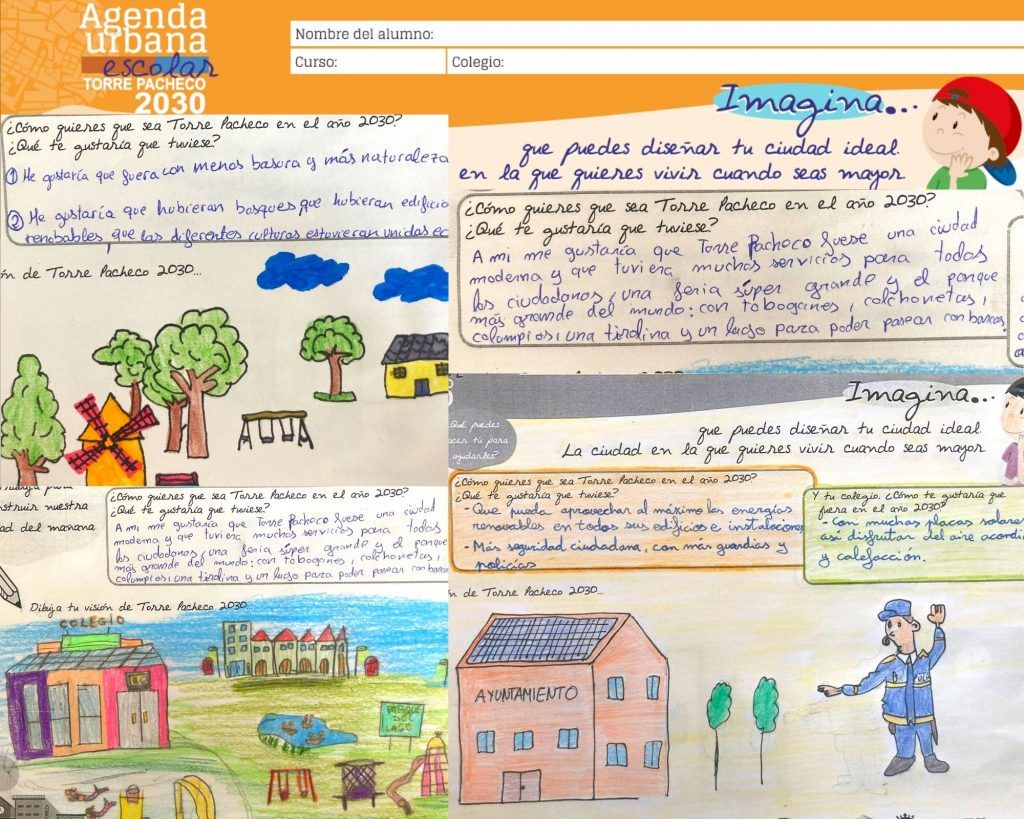 Agenda
urbana
escolar
TORRE PACHECO
2030
Nombre del alumno:
Curso:
Colegio:
Imagina...
que puedes diseñar tu ciudad ideal
en la que quieres vivir cuando seas mayor
¿Cómo quieres que sea Torre Pacheco en el año 2030?
¿Qué te gustaría que tuviese?
① Me gustaría que fuera con menos basura y más naturaleza
② Me gustaría que hubieran bosques que hubieran edificio
renobables, que las diferentes culturas estuvieran unidas
ón de Torre Pacheco 2030...
¿Cómo quieres que sea Torre Pacheco en el año 2030?
¿Qué te gustaría que tuviese?
A mi me gustaría que Torre Pacheco fuese una ciudad
moderna y que tuviera muchos servicios para todos
los ciudadanos, una feria súper grande y el parque
más grande del mundo: con toboganes, colchonetas,
columpios, una tirolina y un lago para poder pasear con barcas.
struir nuestra
ad del mañana
¿Cómo quieres que sea Torre Pacheco en el año 2030?
¿Qué te gustaría que tuviese?
A mi me gustaría que Torre Pacheco fuese una ciudad
moderna y que tuviera muchos servicios para todos
los ciudadanos, una feria súper grande y el parque
más grande del mundo: con toboganes, colchonetas,
columpios, una tirolina y un lago para poder pasear con barcas
Dibuja tu visión de Torre Pacheco 2030...
COLEGIO
PARQUE
DEL
LAGO
Imagina...
que puedes diseñar tu ciudad ideal
La ciudad en la que quieres vivir cuando seas mayor
Qué puedes
cer tú para
ayudarles?
¿Cómo quieres que sea Torre Pacheco en el año 2030?
¿Qué te gustaría que tuviese?
- Que pueda aprovechar al máximo las energías
renovables en todos sus edificios e instalaciones
- Más seguridad ciudadana, con más guardias y
policías
Y tu colegio, ¿Cómo te gustaría que
fuera en el año 2030?
- Con muchas placas solares
así disfrutar del aire acondi
y calefacción.
n de Torre Pacheco 2030...
AYUNTAMIENTO